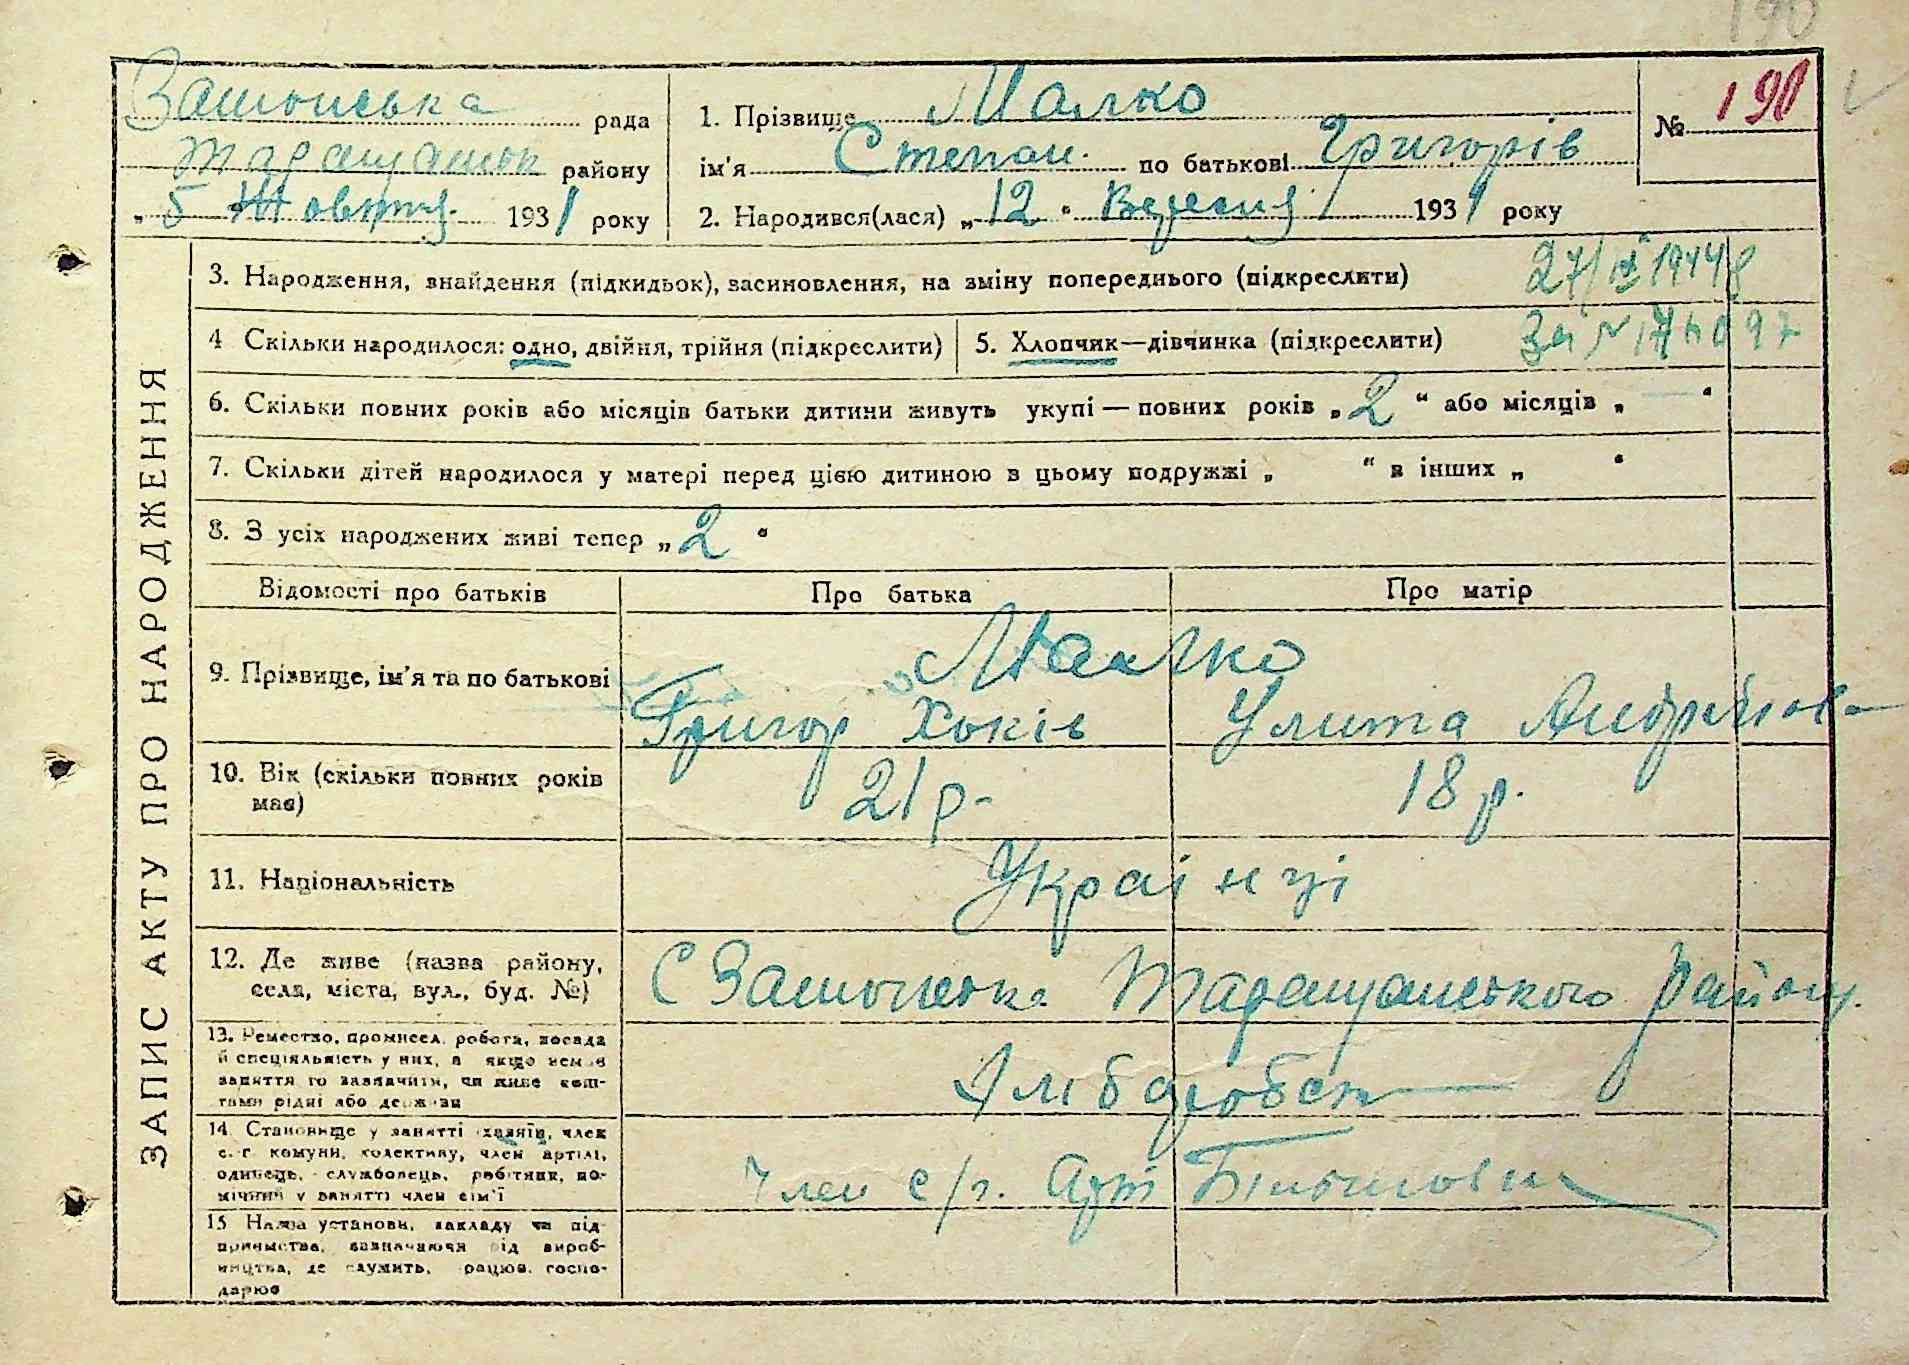 190
Рада
району
„ 5 " Жовтня 1931 року
1. Прізвище Малко
ім'я Степан по батькові Григорів
2. Народився(лася) „ 12 " Вересня 1931 року
№ 190
ЗАПИС АКТУ ПРО НАРОДЖЕННЯ
3. Народження, знайдення (підкидьок), засиновлення, на зміну попереднього (підкреслити)
4 Скільки народилося: одно, двійня, трійня (підкреслити)
5. Хлопчик—дівчинка (підкреслити)
6. Скільки повних років або місяців батьки дитини живуть укупі — повних років „ 2 " або місяців „ — "
7. Скільки дітей народилося у матері перед цією дитиною в цьому подружжі „ " в інших „ "
8. З усіх народжених живі тепер „ 2 "
Відомості про батьків
Про батька
Про матір
9. Прізвище, ім'я та по батькові
Малко
Григор
Улита Андріївна
10. Вік (скільки повних років
має)
21 р-
18 р.
11. Національність
Українці
12. Де живе (назва району,
села, міста, вул., буд. №)
С Таращанського району.
13. Ремество, промисел, робота, посада
й спеціяльність у них, а якщо немає
заняття то зазначити, чи живе кош-
тами рідні або держави
14. Становище у занятті (хазяїн, член
с. г. комуни, колективу, член артілі,
одинець, службовець, робітник, по-
мічний у занятті член сім'ї
Член с/г. Арт
15 Назва установи, закладу чи під-
приємства, зазначаючи від вироб-
ництва, де служить, працює, госпо-
дарює